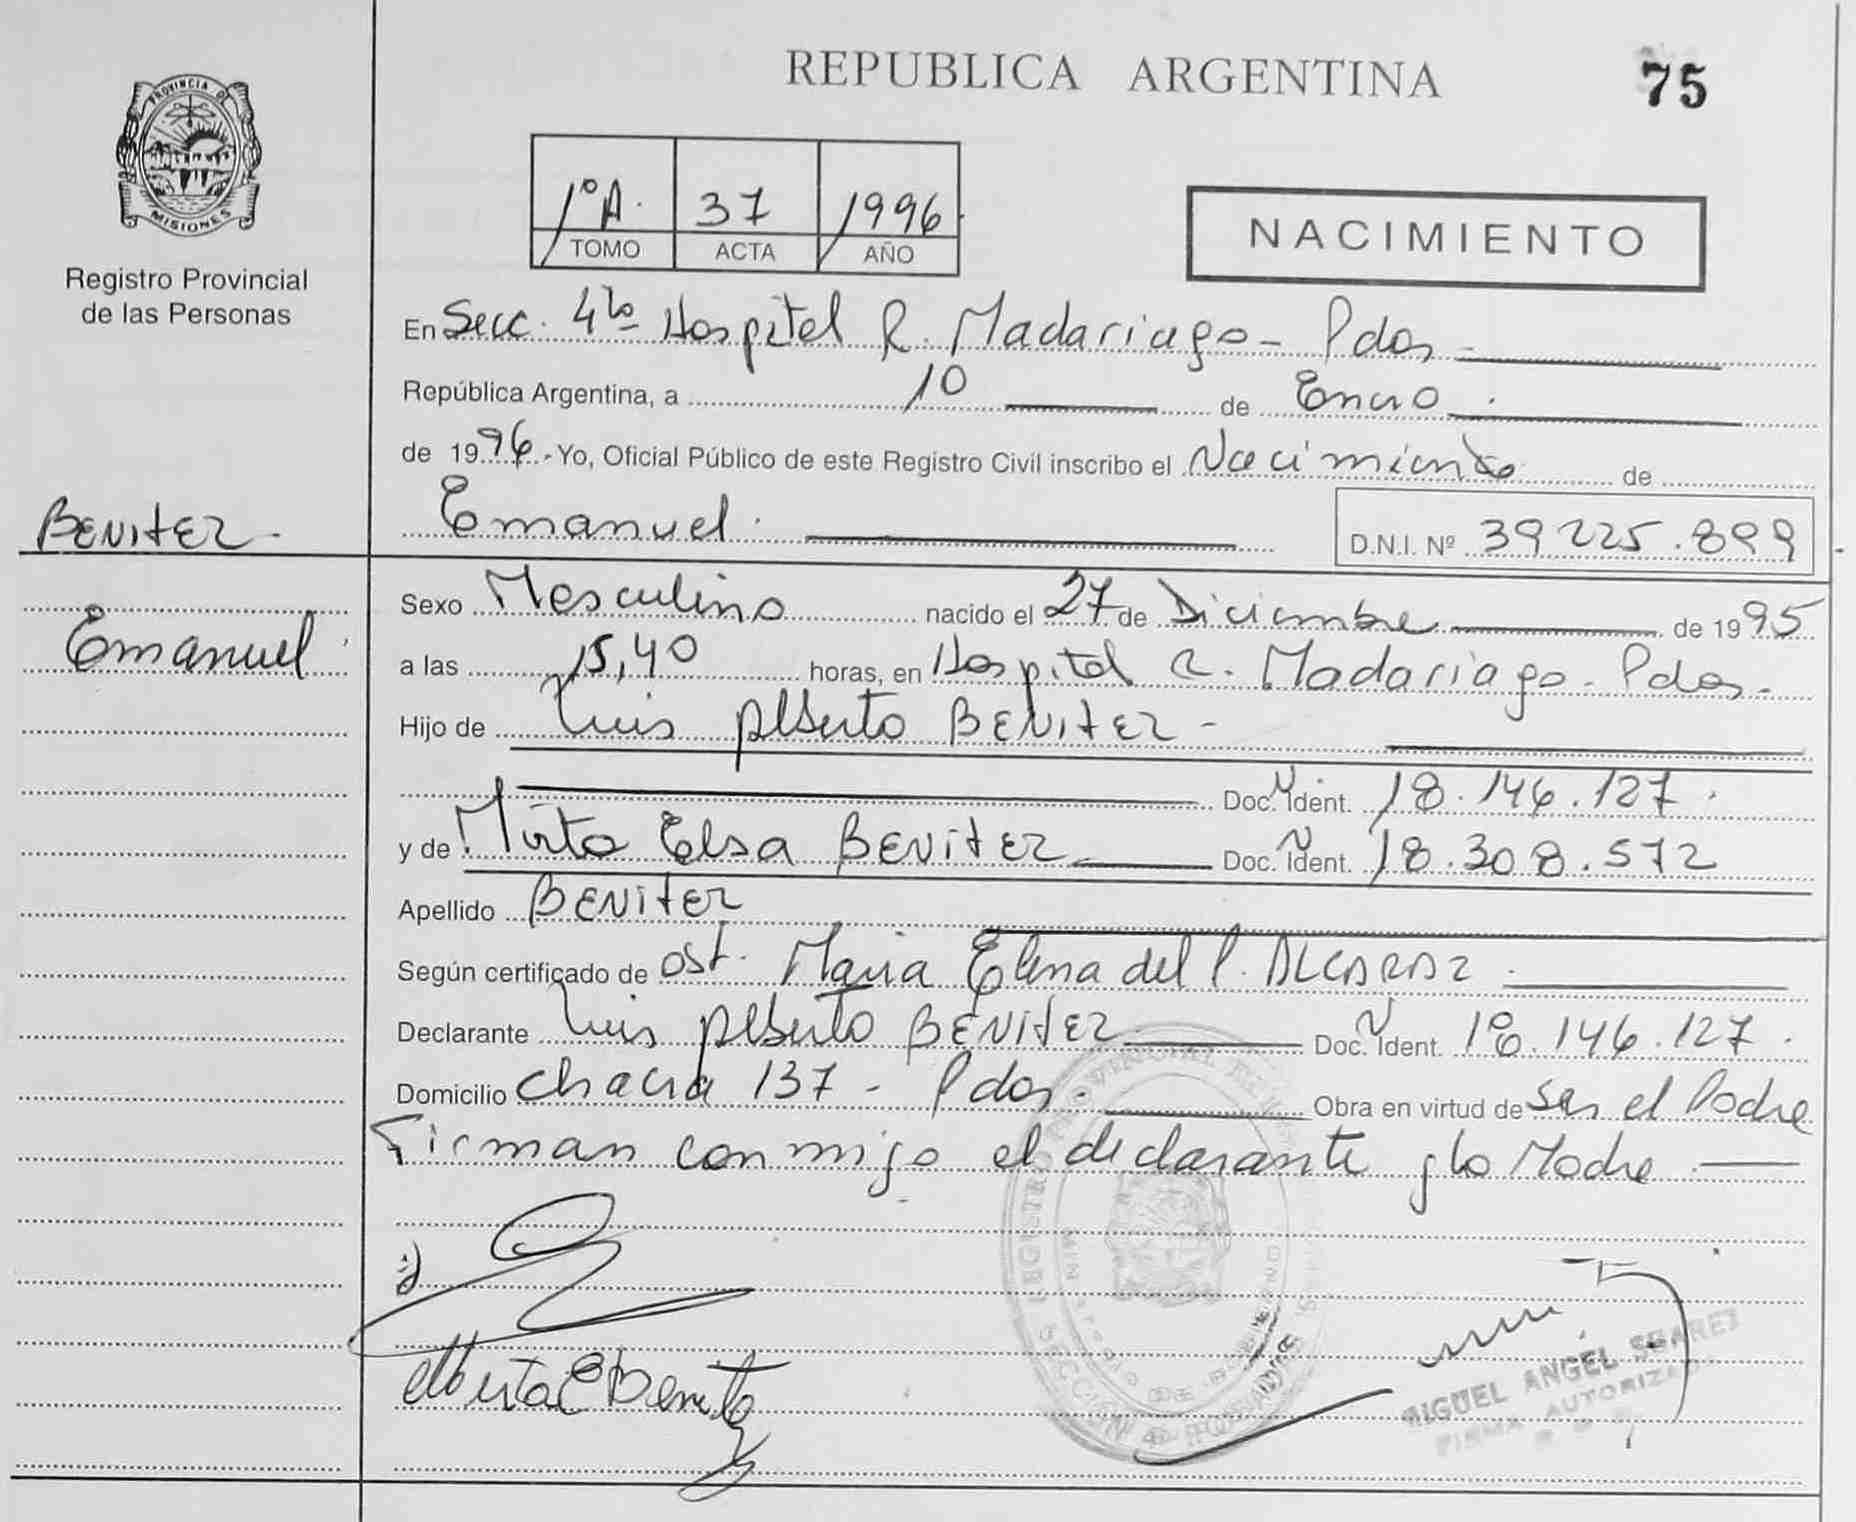 REPUBLICA ARGENTINA
75
PROVINCIA DE
MISIONES
Registro Provincial
de las Personas
1º A. 37 1996
TOMO ACTA AÑO
NACIMIENTO
En Secc. 4ta Hospital R. Madariaga - Pdas -
República Argentina, a 10 de Enero
de 1996 - Yo, Oficial Público de este Registro Civil inscribo el Nacimiento de
BENITEZ -
Emanuel. D.N.I. Nº 39 225.899
Emanuel
Sexo Masculino nacido el 27 de Diciembre de 1995
a las 15,40 horas, en Hospital R. Madariaga - Pdas.
Hijo de Luis Alberto BENITEZ -
Doc. Ident. 18.146.127.
y de Mirta Elsa BENITEZ Doc. Ident. 18.308.572
Apellido BENITEZ
Según certificado de Ost. Maria Elena del P. ALCARAZ
Declarante Luis Alberto BENITEZ Doc. Ident. 18.146.127.
Domicilio Chacra 137 - Pdas. Obra en virtud de Ser el Padre
Firman conmigo el declarante y la Madre
MIGUEL ANGEL SUAREZ
FIRMA AUTORIZADA